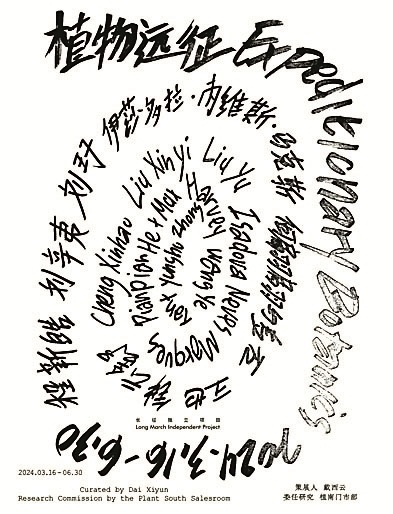 植物远征 Expeditionary Botanics
伊莎多拉·内维斯·马克斯
程新皓 刘辛夷 刘玗
Cheng Xinhao Liu Xinyi Liu Yu
Isadora Neves Marques
Pianpian He + Max Harvey Wang Ye
Tang Yunyun Zhang
王也
2024.3.16-6.30
长征独立项目
Long March Independent Project
2024.03.16-06.30
Curated by Dai Xiyun
Research Commission by the Plant South Salesroom
策展人 戴西云
委任研究 植南门市部